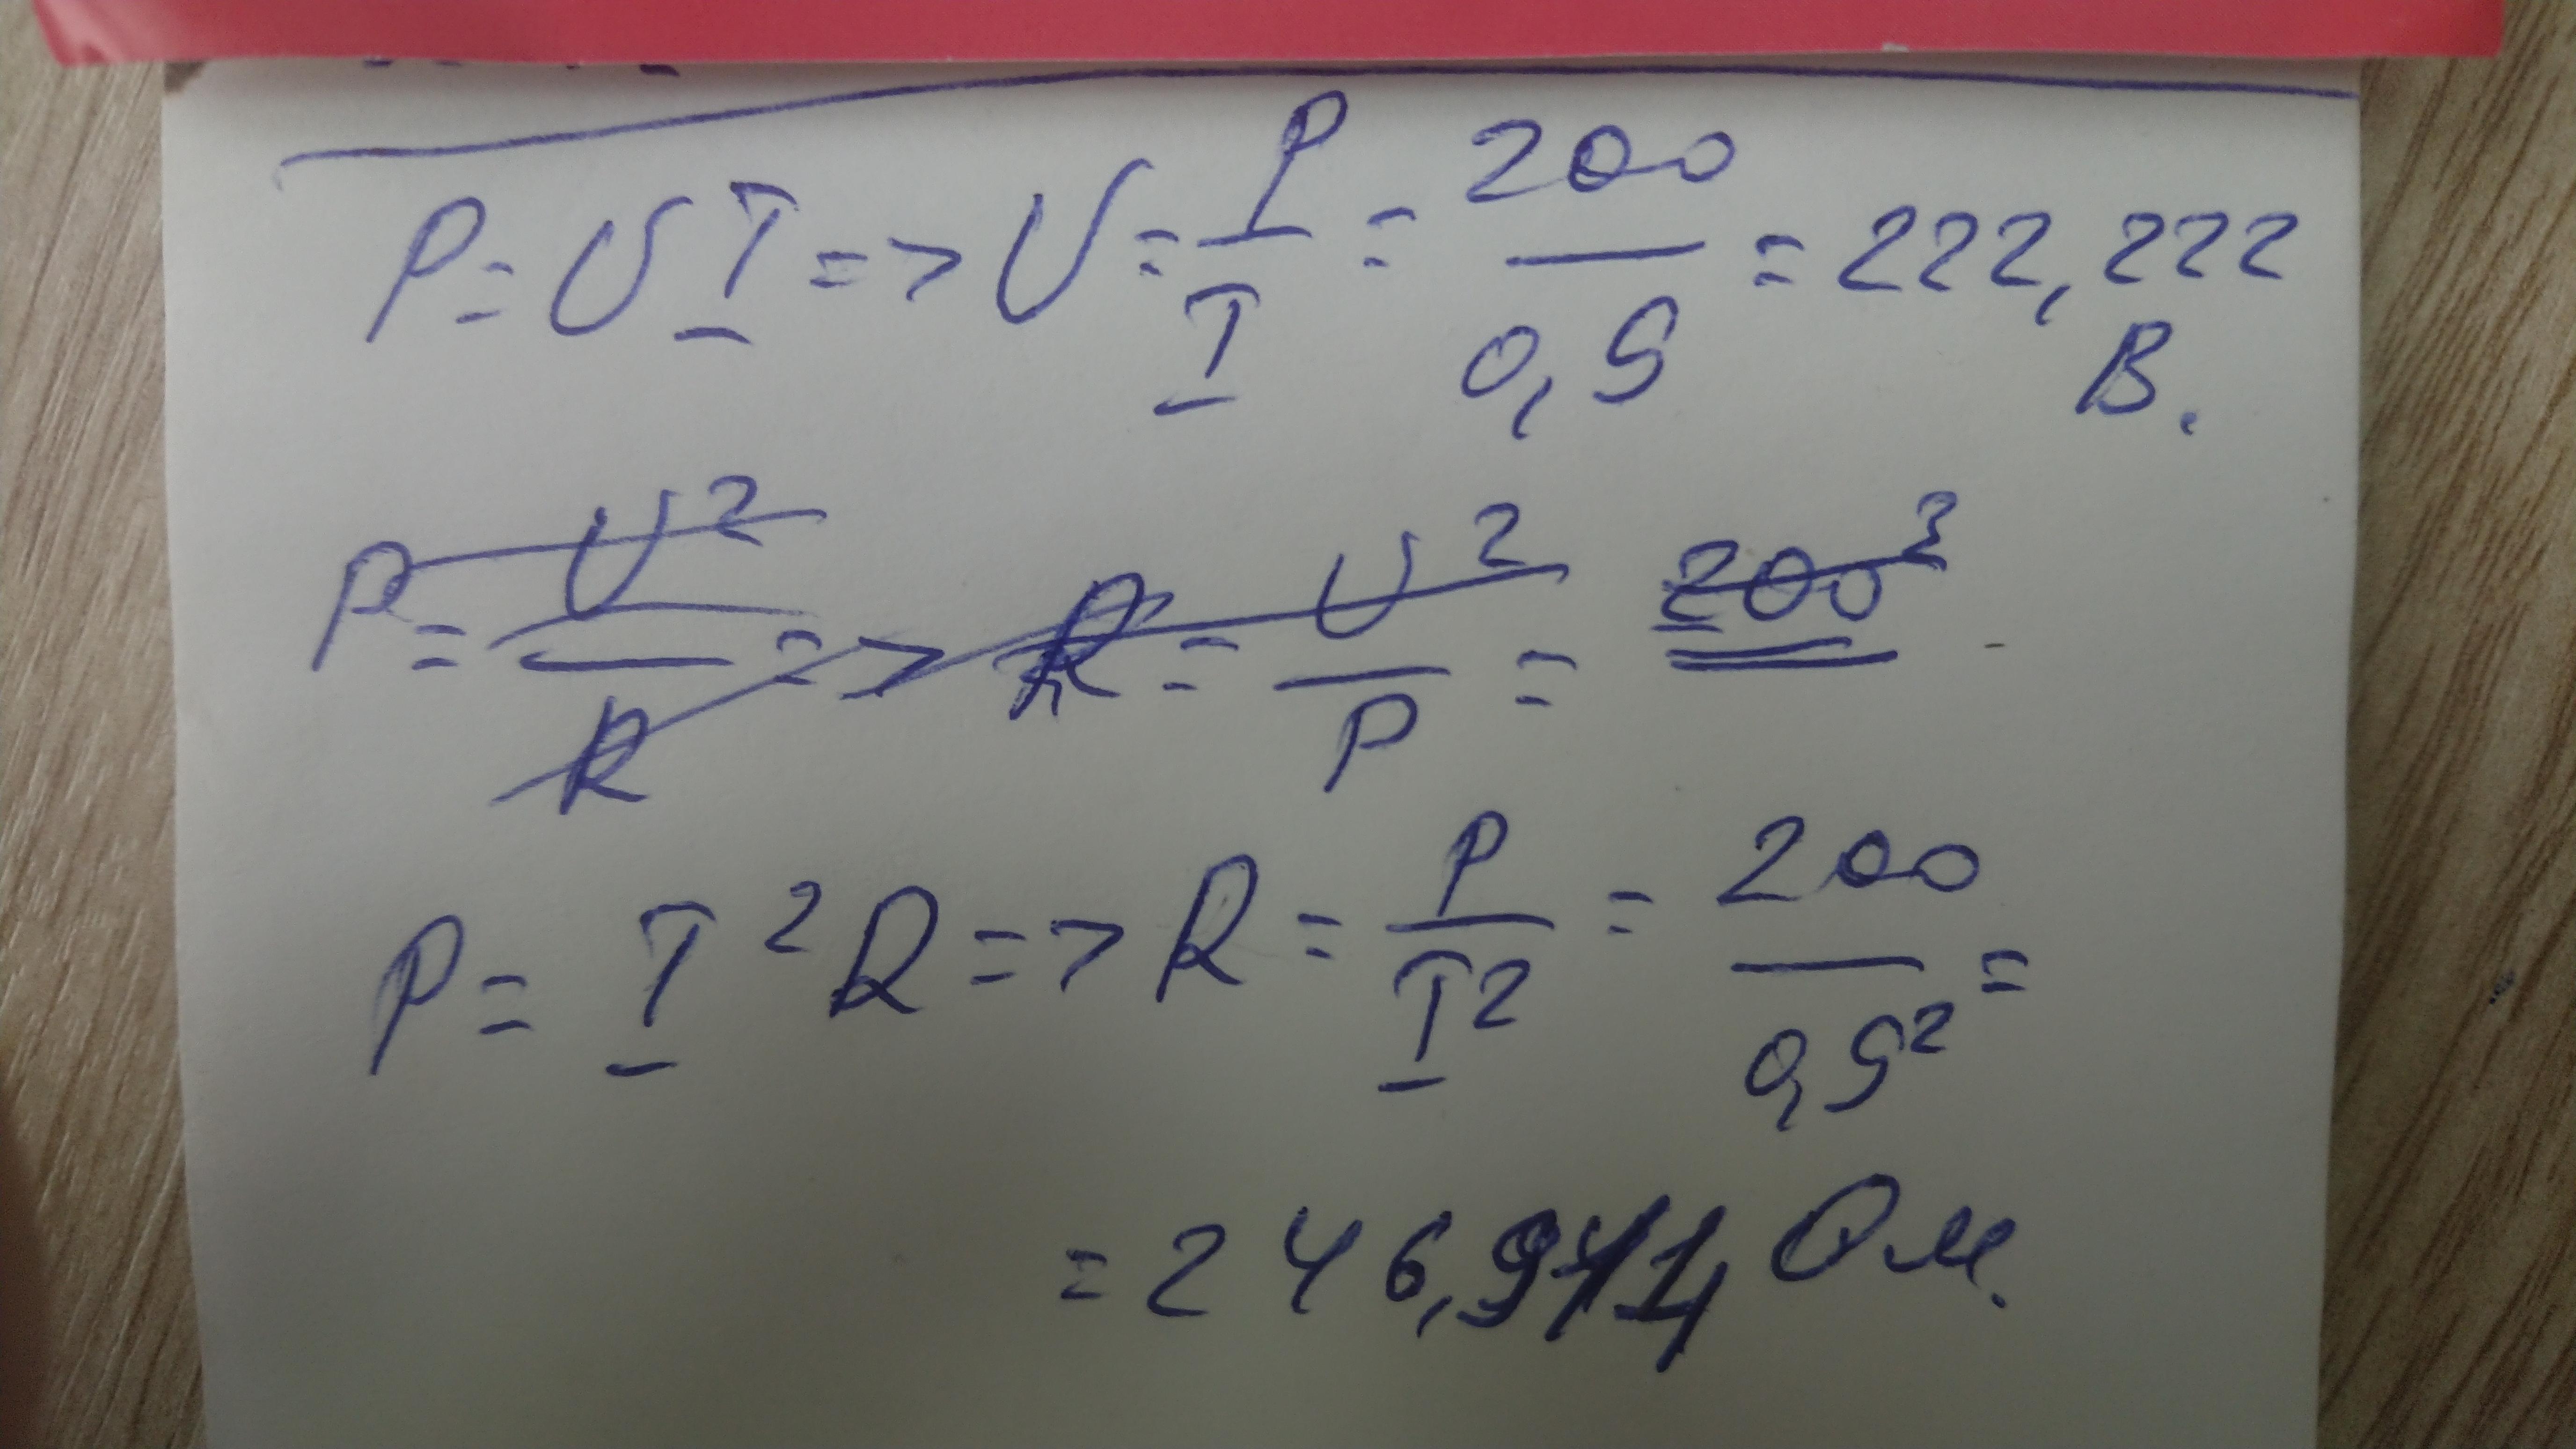 P = UI => U = P/I = 200/0,9 = 222,222 В.
P = U²/R => R = U²/P = 200²
P = I²R => R = P/I² = 200/0,9² =
= 246,914 Ом.